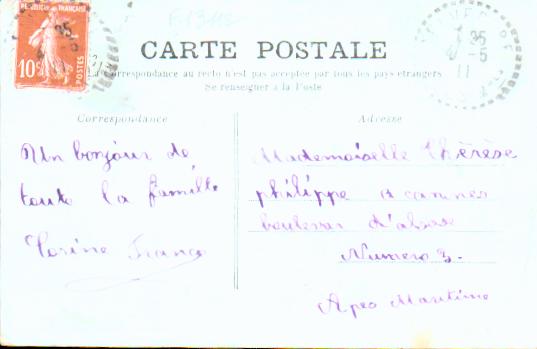 E 1312
REPUBLIQUE FRANÇAISE
10c
POSTES
35
5
11
CARTE POSTALE
La Correspondance au recto n'est pas acceptée par tous les pays étrangers
Se renseigner à la Poste
Correspondance
Adresse
Un bonjour de
toute la famille
Franco
Mademoiselle Thérèse
philippe a cannes
boulevar d'alsase
Numero 3.
Apes Maritime